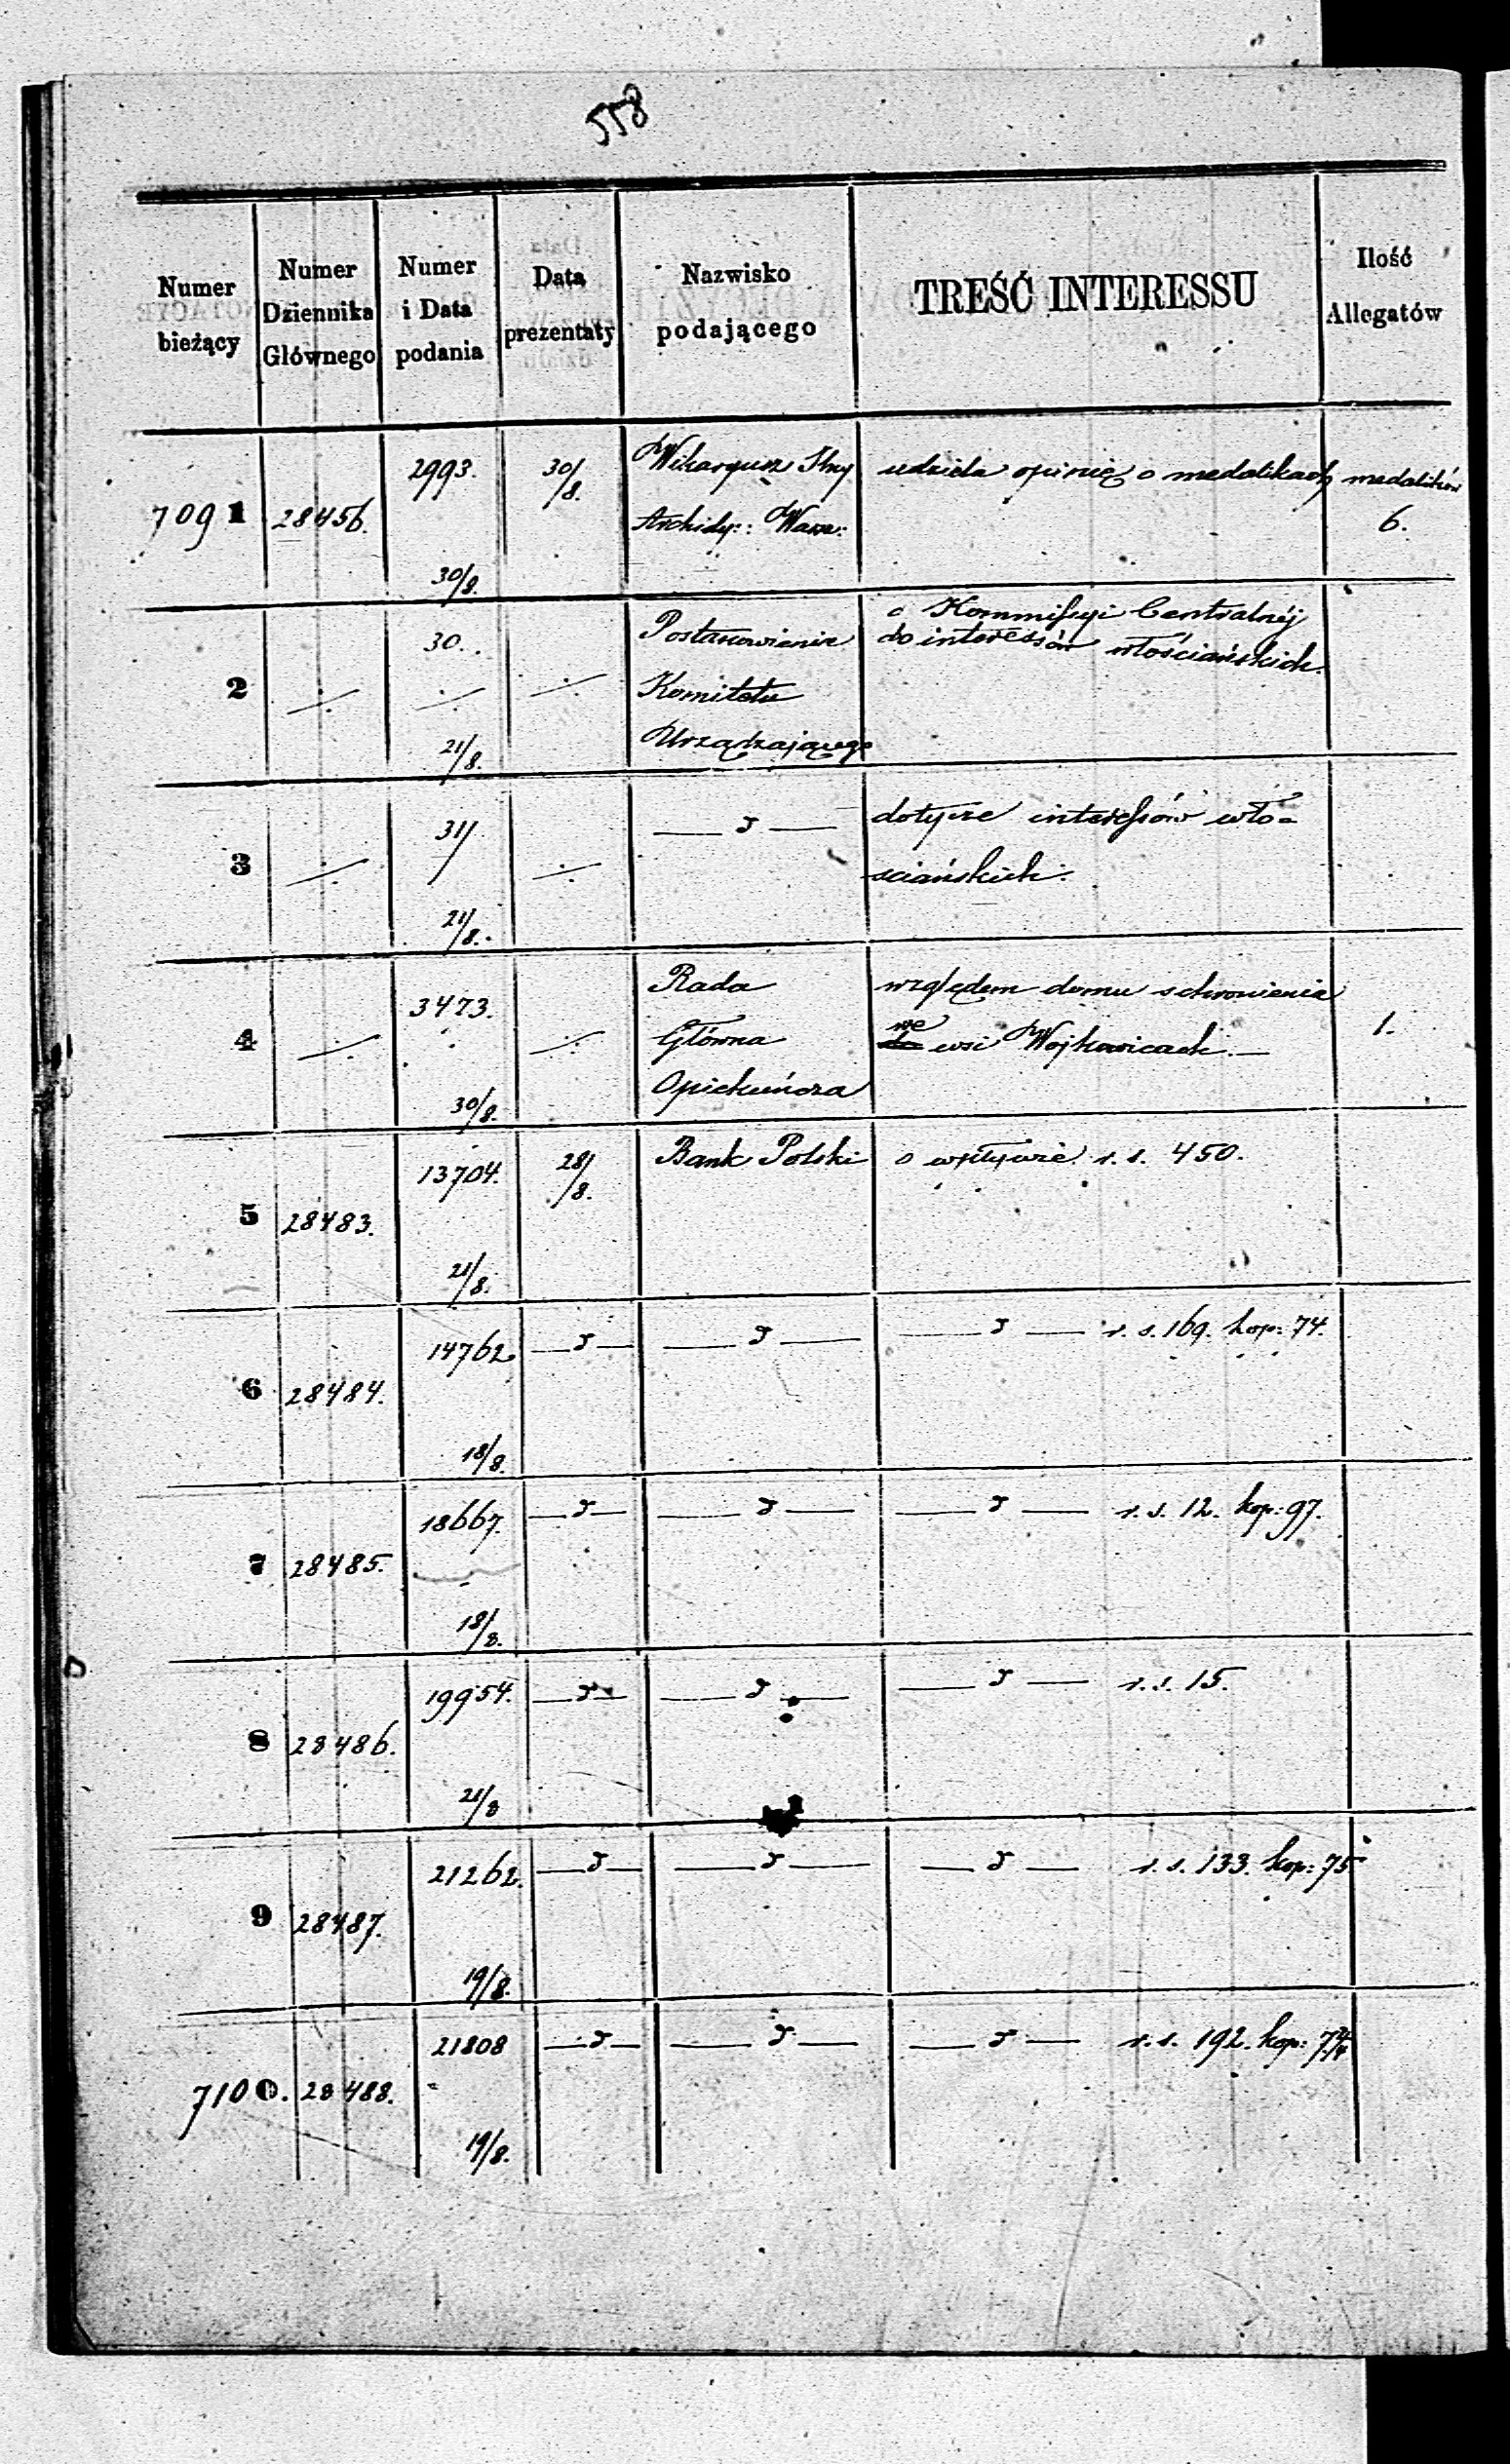 558
Numer bieżący
Numer Dziennika Głównego
Numer i Data podania
Data prezentaty
Nazwisko podającego
TREŚĆ INTERESSU
Ilość Allegatów
7091 28456. 2993. 30/8. 30/8.
Wikaryusz
Archidy:: Warz:
udziela opinię o medalikach
medalików
6.
2 30. 21/8.
Postanowienie
Komitetu
Urządzającego
o Kommissyi Centralnéj
do interessów włościańskich.
3 31/ 21/8.
dotycze interessów wło=
sciańskich.
4 3473. 30/8.
Rada
Główna
Opiekuńcza
względem domu schronienia
we wsi Wojkowicach.—
1.
5 28483. 13704. 21/8. 28/8. Bank Polski o wpływie r. s. 450.
6 28484. 14762 18/8. r. s. 169. kop: 74.
7 28485. 18667. 18/8. r. s. 12. kop: 97.
8 28486. 19954. 21/8 r. s. 15.
9 28487. 21262. 19/8. r. s. 133. kop: 75
7100. 28488. 21808 19/8. r. s. 192. kop: